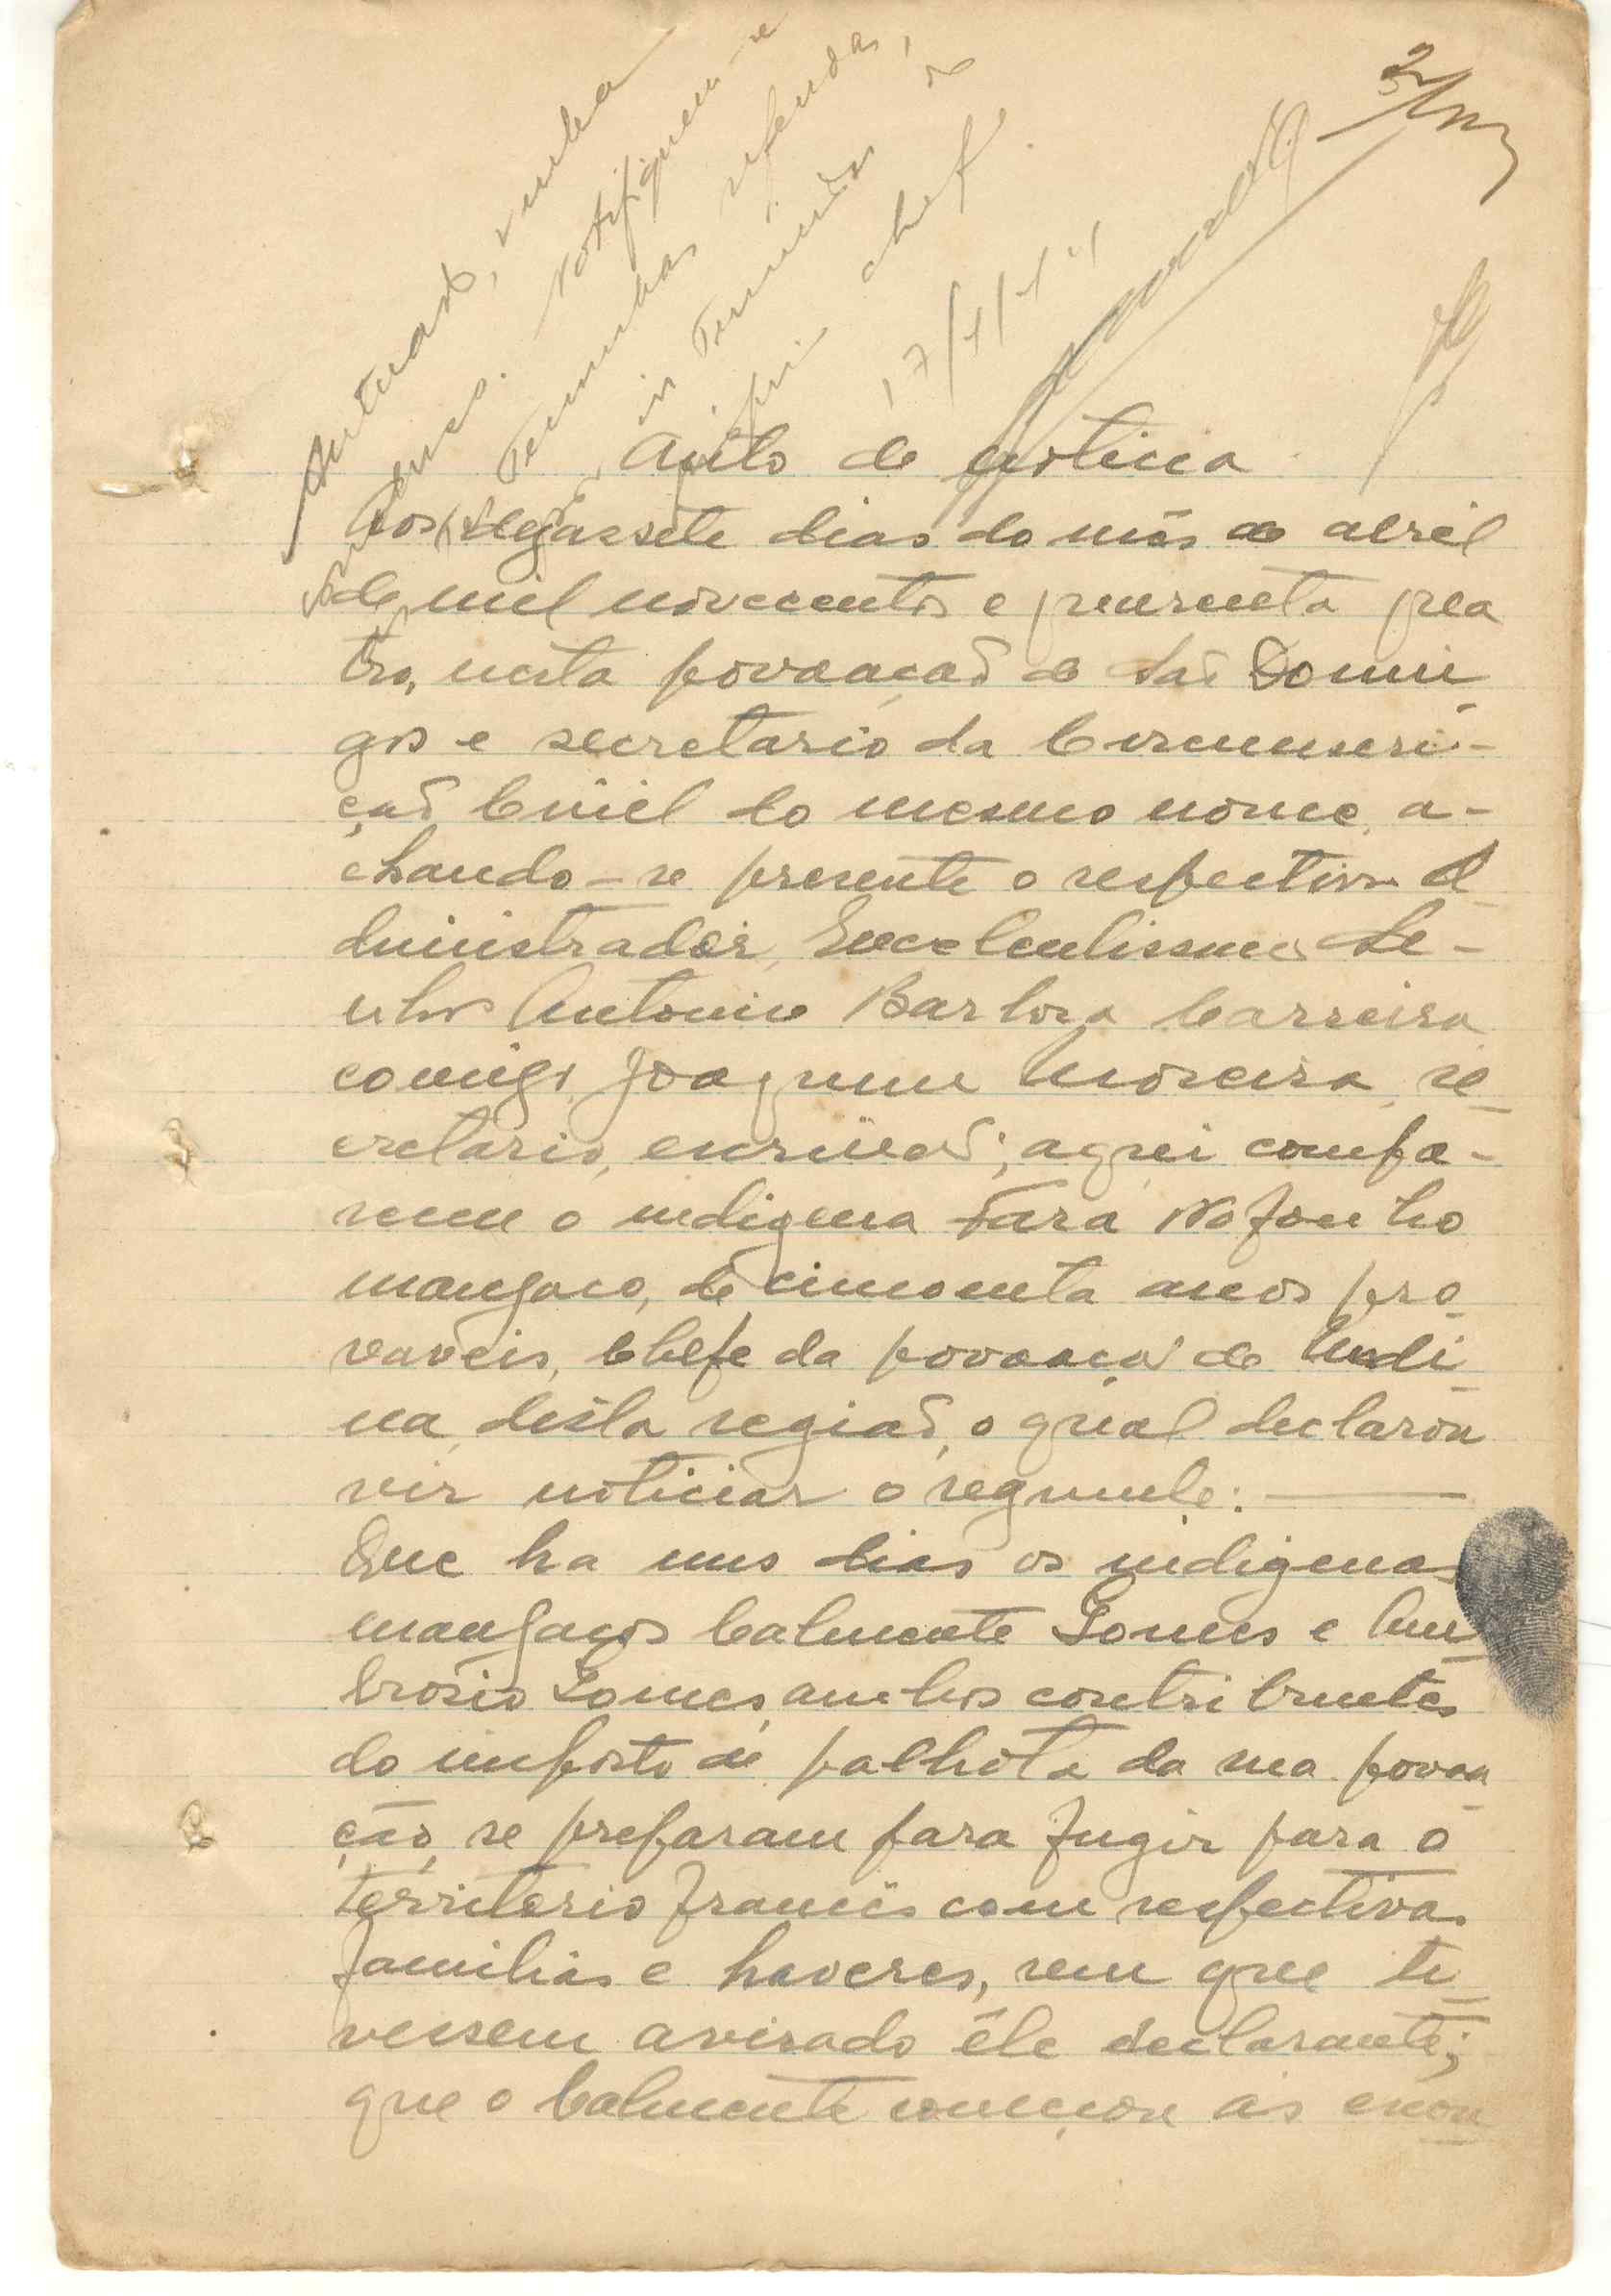 2
Autuado, venha
Notifiquem-se
Termunhas referidas,
17/4/44
Auto de noticia
Aos dezassete dias do mês de abril
de mil novecentos e quarenta qua
tro, nesta povoação de São Domin
gos e secretario da Circunscri-
ção Civil do mesmo nome, a-
chando-se presente o respectivo A
dministrador, Excelentissimo Se-
nhor Antonio Barbosa Carreira
comigo, Joaquim Moreira, se
cretario, escrivão; aqui compa-
receu o indigena Fara
manjaco, de cincoenta anos pro
vaveis, Chefe da povoação de
na, desta região, o qual declarou
vir noticiar o seguinte:
Que ha uns dias os indigenas
manjacos Calmente Gomes e Am
brósio Gomes, ambos contribuintes
do imposto de palhota da sua povoa
ção, se preparam para fugir para o
territorio francês com respectivas
familias e haveres, sem que ti
vessem avisado êle declarante;
que o Calmente começou ás escon